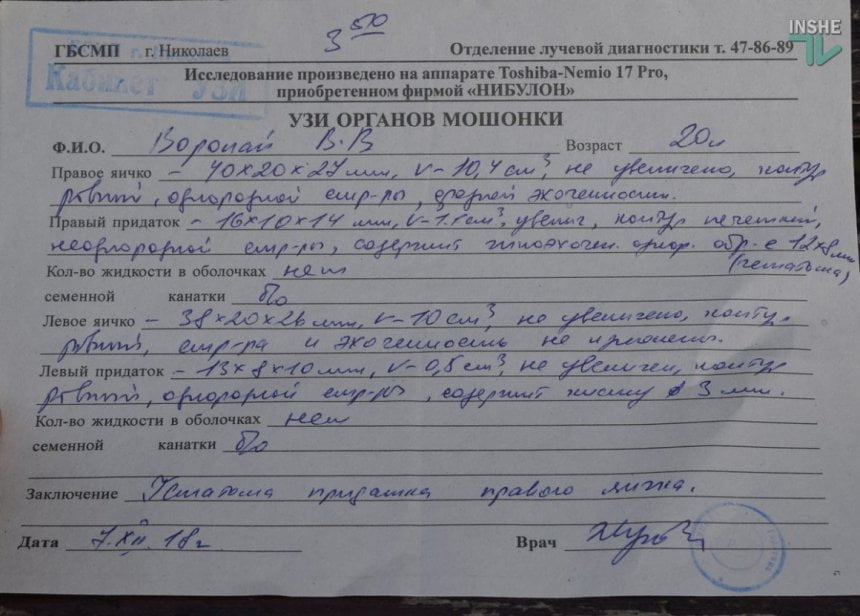 INSHE
3 50
ГБСМП г. Николаев Отделение лучевой диагностики т. 47-86-89
Кабинет УЗИ
Исследование произведено на аппарате Toshiba-Nemio 17 Pro,
приобретенном фирмой «НИБУЛОН»
УЗИ ОРГАНОВ МОШОНКИ
Ф.И.О. Воропай В.В Возраст 20л
Правое яичко – 40х20х27мм, V–10,4 см³, не увеличено, контур
ровный, однородной стр-ры, средней эхогенности.
Правый придаток – 16х10х14 мм, V–1.1см³, увелич, контур нечеткий,
неоднородной стр-ры, содержит гипоэхоген. обр. с 12х8мм
(гематома)
Кол-во жидкости в оболочках нет
семенной канатки б/о
Левое яичко – 38х20х26мм, V–10см³, не увеличено, контур
ровный, стр-ра и эхогенность не изменены.
Левый придаток – 13х8х10мм, V–0,5см³, не увеличен, контур
ровный, однородной стр-ры, содержит кисту 3 мм.
Кол-во жидкости в оболочках нет
семенной канатки б/о
Заключение Гематома придатка правого яичка.
Дата 7.XII.18г Врач